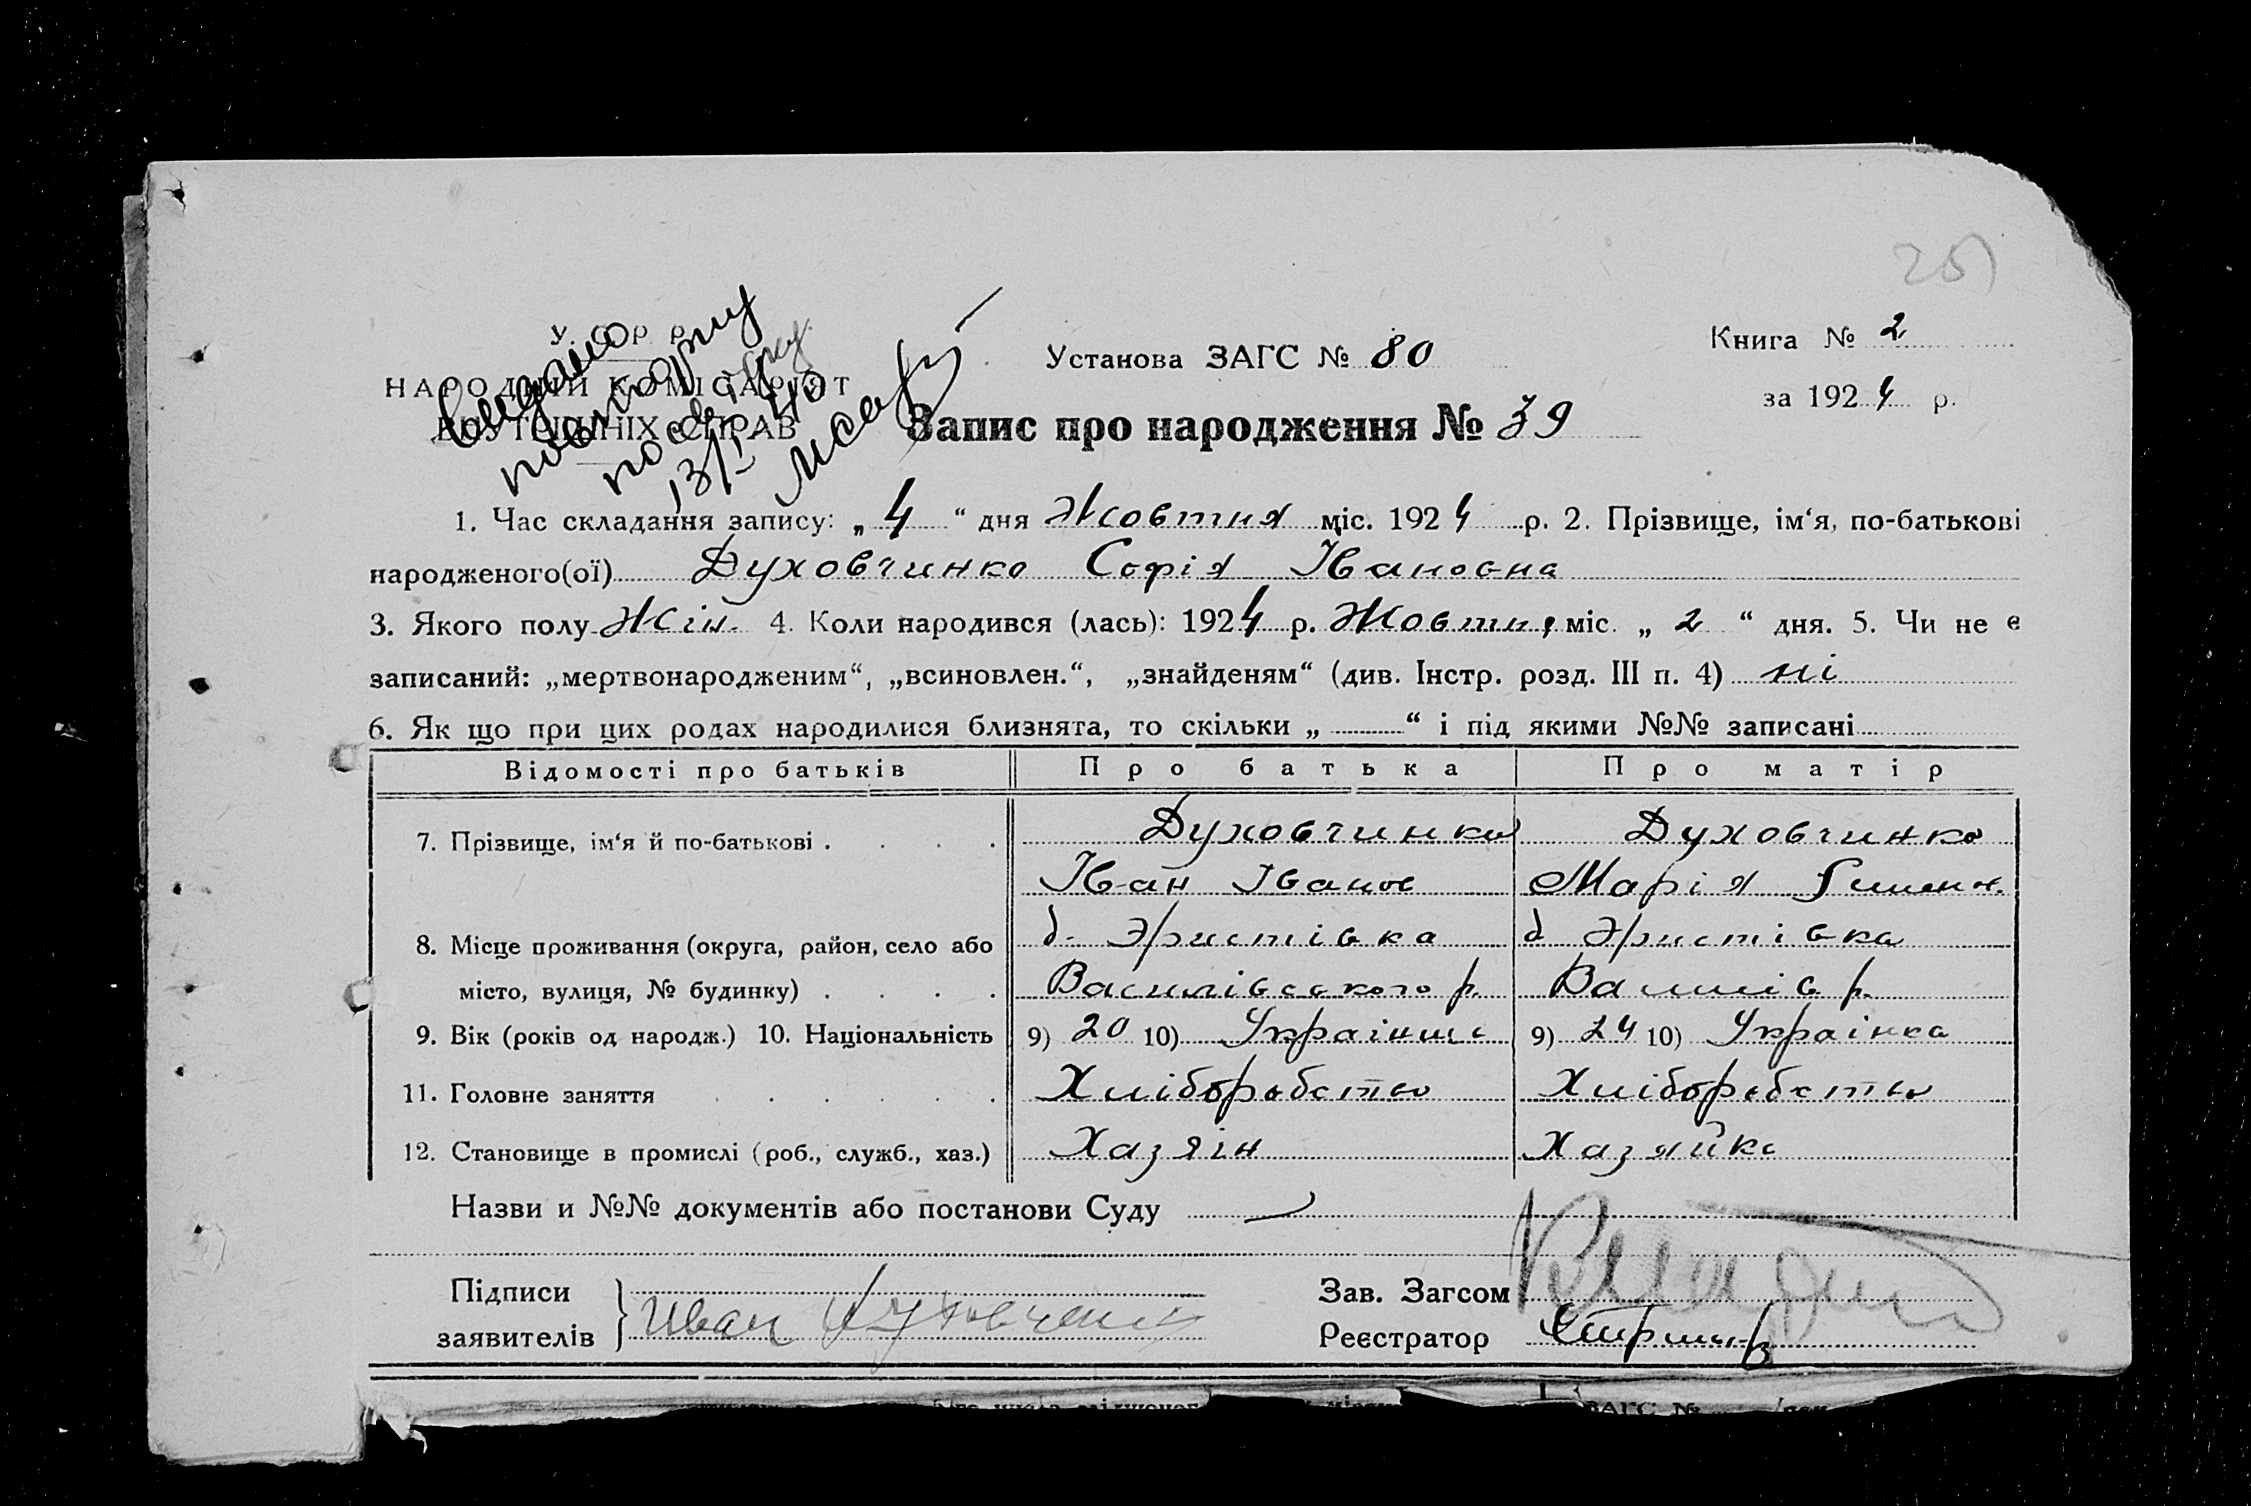 251
У. С. Р. Р.
НАРОДНІЙ КОМІСАРІЯТ
ВНУТРІШНІХ СПРАВ
Видано
повторну
13/I 40
Установа ЗАГС № 80
Книга № 2
за 1924 р.
Запис про народження № 39
1. Час складання запису: „4“ дня Жовтня міс. 1924 р. 2. Прізвище, ім‘я, по-батькові
народженого(ої) Духовчинко Софія Івановна
3. Якого полу Жін. 4. Коли народився (лась): 1924 р. Жовтня міс. „2“ дня. 5. Чи не є
записаний: „мертвонародженим“, „всиновлен.“, „знайденям“ (див. Інстр. розд. III п. 4) ні
6. Як що при цих родах народилися близнята, то скільки „ “ і під якими №№ записані
Відомості про батьків Про батька Про матір
7. Прізвище, ім‘я й по-батькові . . . . Духовчинко Духовчинко
Іван Іванов Марія
8. Місце проживання (округа, район, село або д. Эристівка д Эристівка
місто, вулиця, № будинку) . . . . Василівського р. Василів р.
9. Вік (років од народж.) 10. Національність 9) 20 10) Украінец 9) 24 10) Украінка
11. Головне заняття . . . . . . Хліборобство Хліборобство
12. Становище в промислі (роб., служб., хаз.) Хазяін Хазяйка
Назви и №№ документів або постанови Суду —
Підписи
заявителів } Иван Духовченко
Зав. Загсом
Реєстратор
ЗАГС №